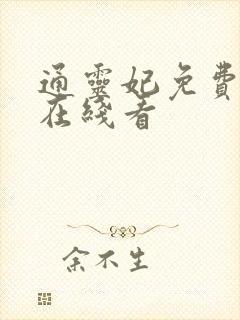 通靈妃免費
在綫看
余不生